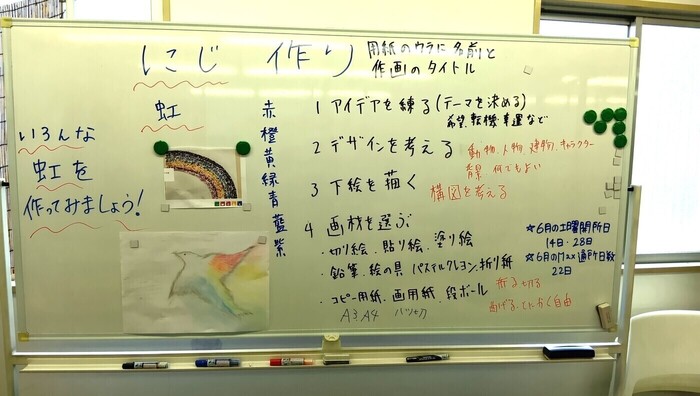 にじ 作り
用紙のウラに名前と
作画のタイトル
いろんな
虹を
作ってみましょう!
虹
赤橙黄緑青藍紫
1 アイデアを練る(テーマを決める)
希望、転機、幸運など
2 デザインを考える
動物、人物、建物、キャラクター
背景 何でもよい
3 下絵を描く
構図を考える
4 画材を選ぶ
・切り絵、貼り絵、塗り絵
・鉛筆・絵の具 パステルクレヨン、折り紙
・コピー用紙、画用紙、段ボール
A3、A4
折る 切る
自由
☆6月の土曜開所日
14日・28日
☆6月のMax通所日数
22日